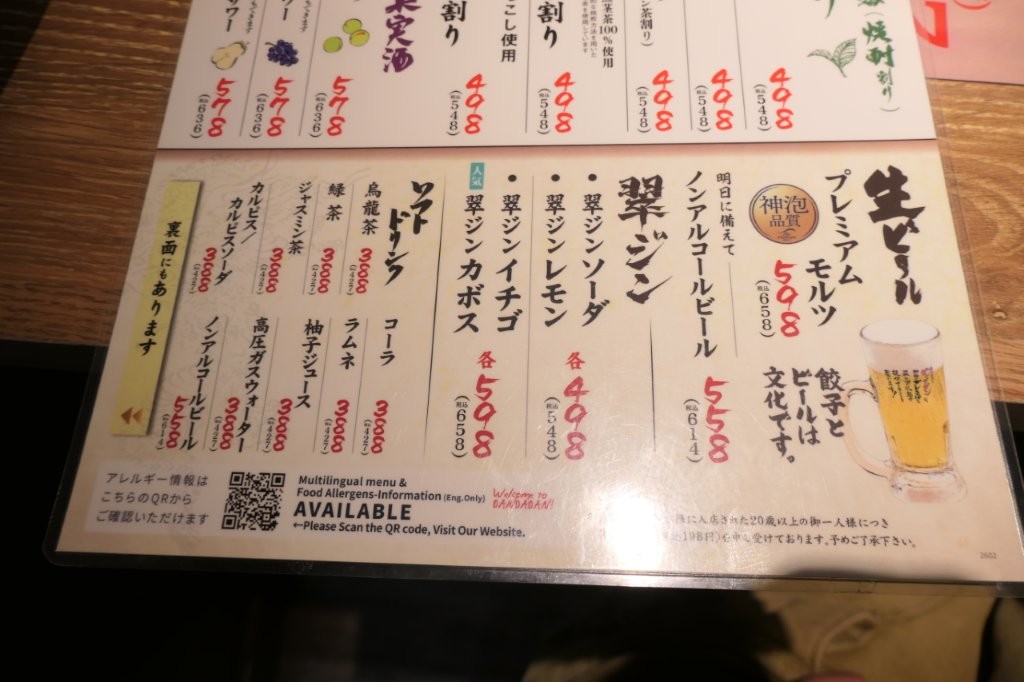 焼酎割り)
498
(税込548)
498
(税込548)
茶割り)
498
(税込548)
茶葉100%使用
割り
498
(税込548)
こし使用
割り
498
(税込548)
果実酒
578
(税込636)
サワー
578
(税込636)
サワー
578
(税込636)
生ビール
プレミアム
モルツ
神泡
品質
598
(税込658)
餃子と
ビールは
文化です。
明日に備えて
ノンアルコールビール
558
(税込614)
翠ジン
・翠ジンソーダ
・翠ジンレモン
各498
(税込548)
・翠ジンイチゴ
人気
翠ジンカボス
各598
(税込658)
ソフト
ドリンク
烏龍茶
388
(税込427)
緑茶
388
(税込427)
ジャスミン茶
388
(税込427)
カルピス/
カルピスソーダ
388
(税込427)
コーラ
388
(税込427)
ラムネ
388
(税込427)
柚子ジュース
388
(税込427)
高圧ガスウォーター
388
(税込427)
ノンアルコールビール
558
(税込614)
裏面にもあります
アレルギー情報は
こちらのQRから
ご確認いただけます
Multilingual menu &
Food Allergens-Information (Eng.Only)
AVAILABLE
←Please Scan the QR code, Visit Our Website.
Welcome to
DANDADAN!
降に入店された20歳以上の御一人様につき
198円)を申し受けております。予めご了承下さい。
2602